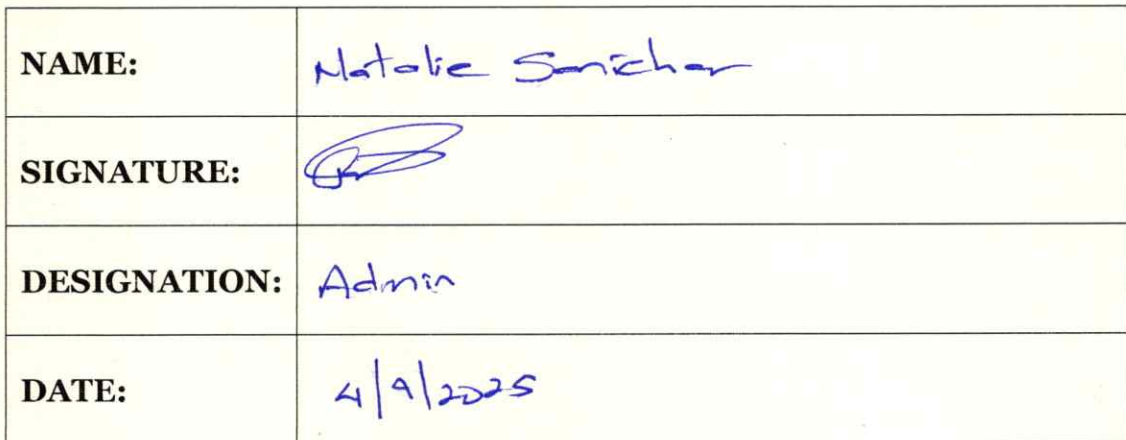 NAME: Natalie Sanichar
SIGNATURE:
DESIGNATION: Admin
DATE: 4/9/2025